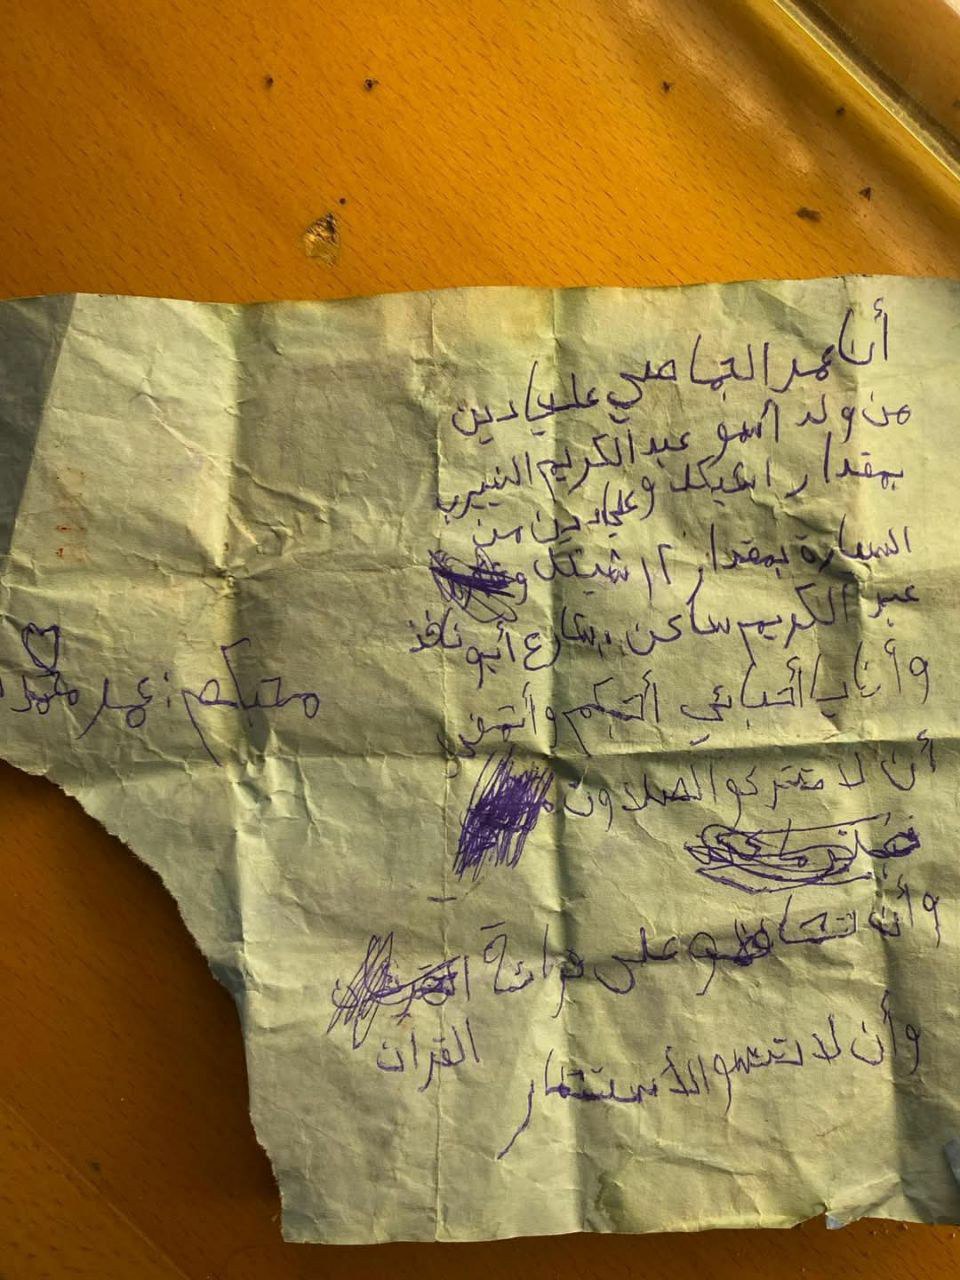 أنا عمر الجماصي عليا دين
من ولد اسمو عبد الكريم النيرب
بمقدار 1شيكل وعليا دين من
السيارة بمقدار 2 شيكل و
عبد الكريم ساكن بشارع أبو نافذ
وأنا يا أحبائي أحبكم وأتمنى
أن لا تتركو الصلاة
وأن تحافظو على قرائة
القران
وأن لا تنسو الأستغفار
محبكم : عمر محمد